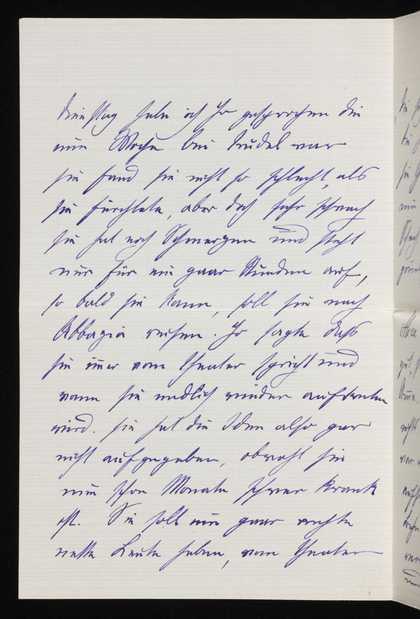 Dienstag habe ich Jo gesprochen die
eine Woche bei Trudel war
sie fand sie nicht so schlecht, als
sie fürchtete, aber doch sehr schwach
sie hat noch Schmerzen und steht
nur für ein paar Stunden auf,
so bald sie kann, soll sie nach
Abbazia reisen. Jo sagte dass
sie immer vom Theater spricht und
wann sie endlich wieder auftreten
wird. sie hat die Idee also gar
nicht aufgegeben, obwohl sie
nun schon Monate schwer krank
ist. Sie soll ein paar rechte
nette Leute haben, vom Theater